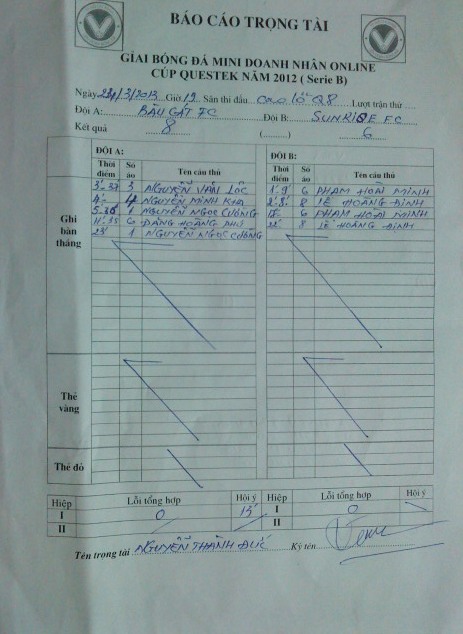 BÁO CÁO TRỌNG TÀI
GIẢI BÓNG ĐÁ MINI DOANH NHÂN ONLINE
CÚP QUESTEK NĂM 2012 ( Serie B)
Ngày 24/3/2013 Giờ 19 Sân thi đấu Cao lỗ Q8 Lượt trận thứ
Đội A: BÀU CÁT FC Đội B: SUNRISE FC
Kết quả 8 (......) 6
ĐỘI A: ĐỘI B:
Thời điểm Số áo Tên cầu thủ Thời điểm Số áo Tên cầu thủ
Ghi bàn thắng
3 NGUYỄN VĂN LỘC 6 PHẠM HOÀI MINH
4 NGUYỄN MINH KHA 8 LÊ HOÀNG ĐỊNH
1 NGUYỄN NGỌC CƯỜNG 6 PHẠM HOÀI MINH
6 ĐẶNG HOÀNG PHÚ 22' 8 LÊ HOÀNG ĐỊNH
23' 1 NGUYỄN NGỌC CƯỜNG
Thẻ vàng
Thẻ đỏ
Hiệp Lỗi tổng hợp Hội ý Hiệp Lỗi tổng hợp Hội ý
I 0 15' I 0
II II
Tên trọng tài NGUYỄN THÀNH ĐỨC Ký tên